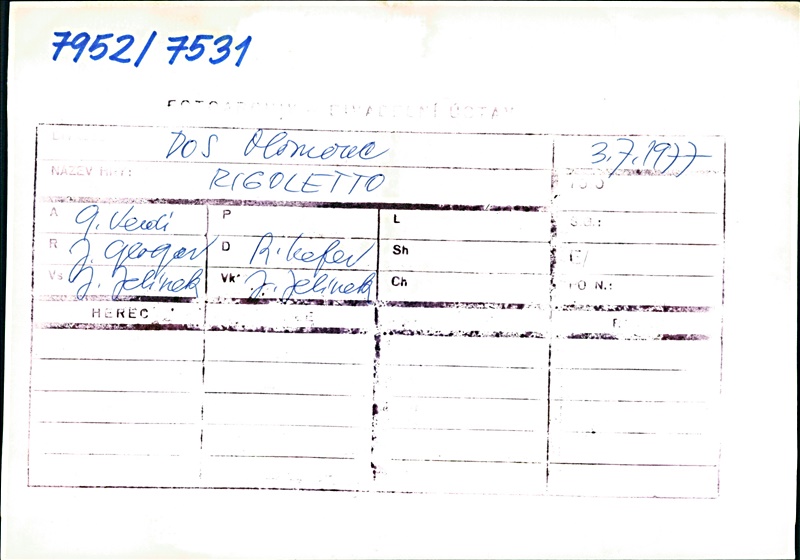 7952/7531
DIVADELNÍ ÚSTAV
DOS Olomouc 3.7.1977
NÁZEV HRY: RIGOLETTO
A G. Verdi P L
R J. Glogar D R. Kefer Sh
Vs J. Jelínek Vk J. Jelínek Ch
HEREC